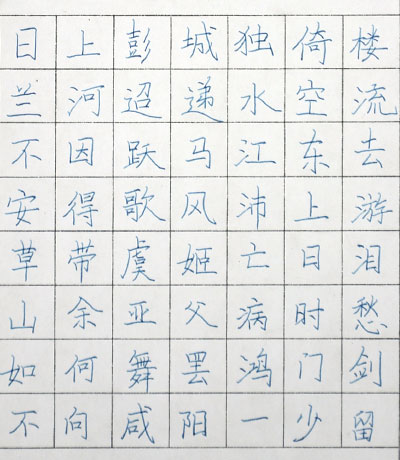 日上彭城独倚楼
兰河迢递水空流
不因跃马江东去
安得歌风沛上游
草带虞姬亡日泪
山余亚父病时愁
如何舞罢鸿门剑
不向咸阳一少留